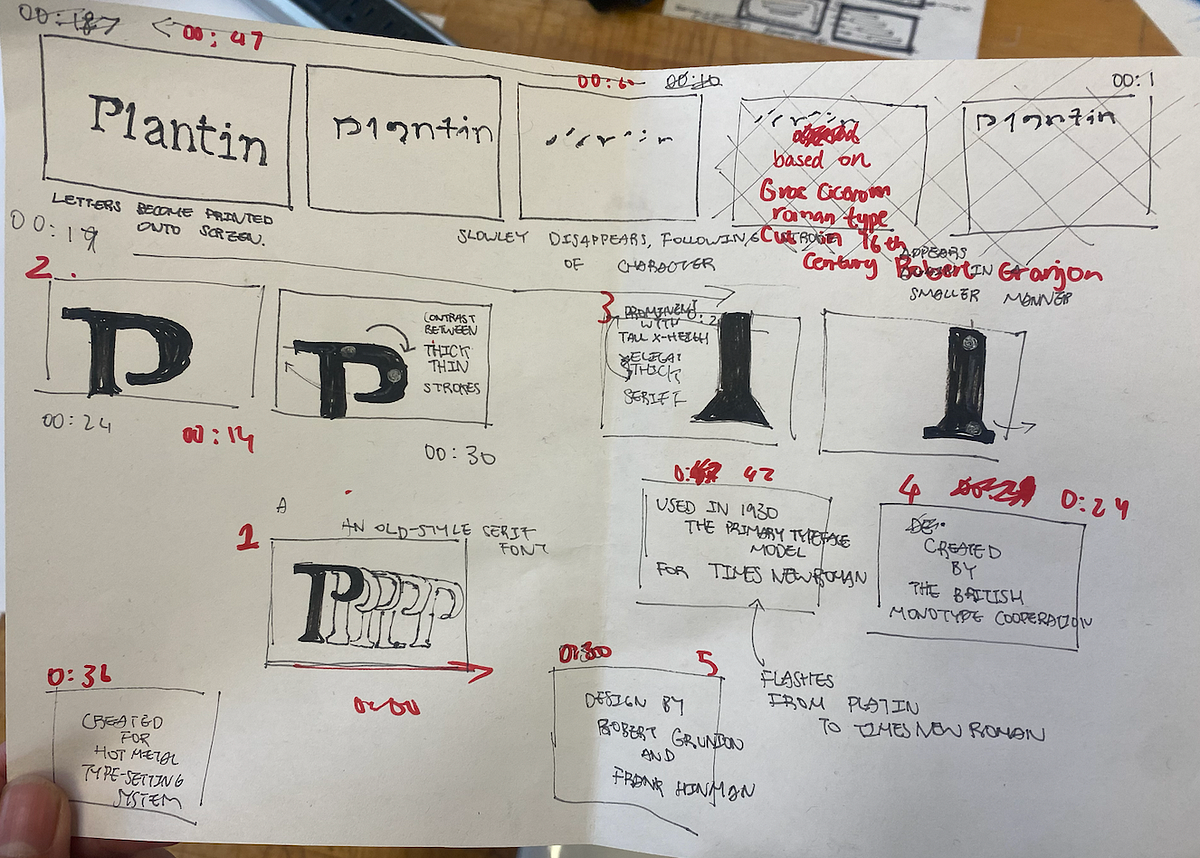 00:18
00:47
00:10
00:1
Plantin
Plantin
Plantin
based on
Gros Cicerom
roman type
Cut in 16th
century Robert Granjon
LETTERS BECOME PRINTED
ONTO SCREEN.
SLOWLEY DISAPPEARS, FOLLOWING STROKE
OF CHARACTER
APPEARS
IN A
SMALLER MANNER
00:19
2.
P
P
CONTRAST
BETWEEN
THICK
THIN
STROKES
3
PROMINENT
WITH
TALL X-HEIGH
THICK
SERIFF
00:24
00:14
00:30
0:
42
USED IN 1930
THE PRIMARY TYPEFACE
MODEL
FOR TIMES NEW ROMAN
4
0:24
CREATED
BY
THE BRITISH
MONOTYPE COOPERATION
A
AN OLD-STYLE SERIF
FONT
1
PPPPP
0:00
FLASHES
FROM PLATIN
TO TIMES NEW ROMAN
0:36
CREATED
FOR
HOT METAL
TYPE-SETTING
SYSTEM
0:30
5
DESIGN BY
ROBERT GRUNION
AND
FRANK HINMAN